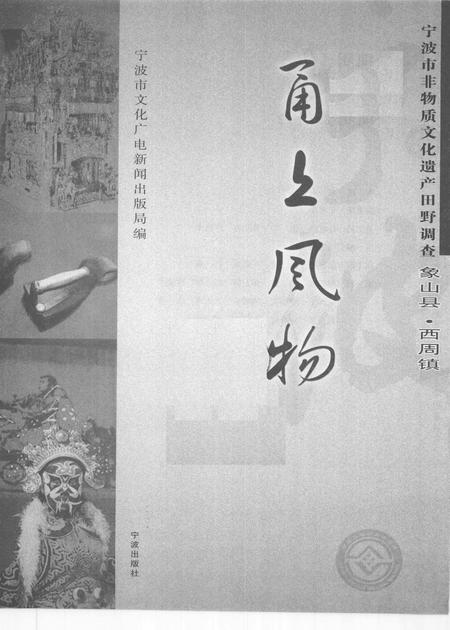 宁波市非物质文化遗产田野调查 象山县·西周镇
甬上风物
宁波市文化广电新闻出版局编
宁波出版社